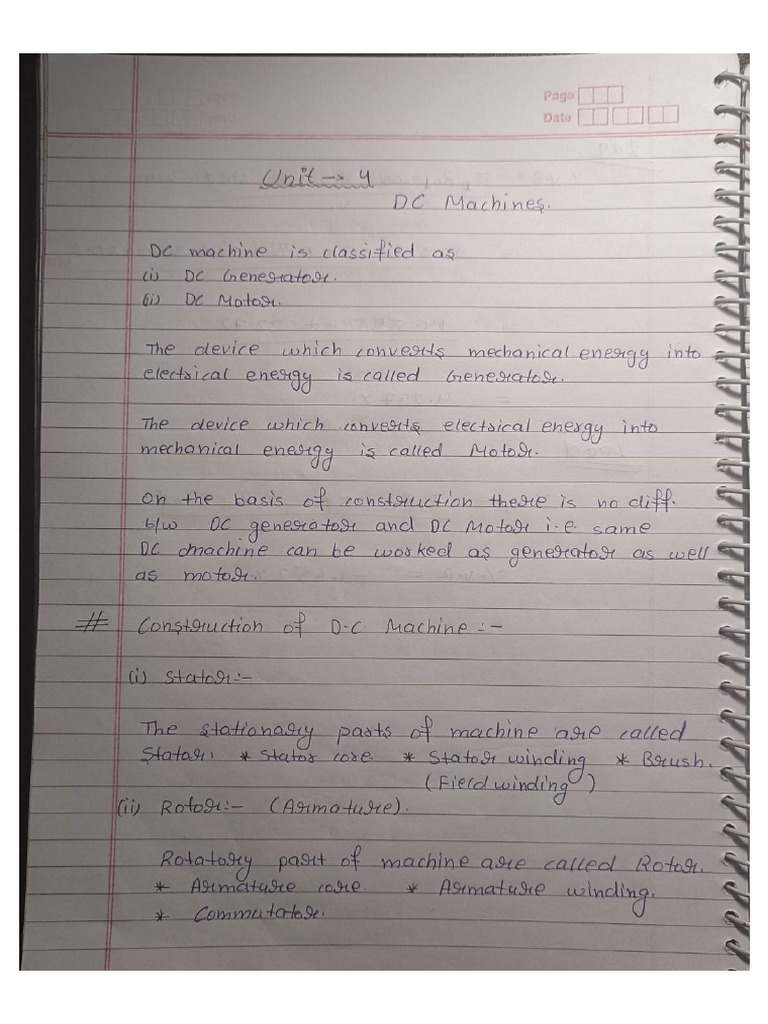 Page
Date
Unit → 4
DC Machines.
DC machine is classified as
(i) DC Generator.
(ii) DC Motor.
The device which converts mechanical energy into
electrical energy is called Generator.
The device which converts electrical energy into
mechanical energy is called Motor.
On the basis of construction there is no diff.
b/w DC generator and DC Motor i.e. same
DC machine can be worked as generator as well
as motor.
# Construction of D.C. Machine :-
(i) Stator:-
The stationary parts of machine are called
Stator. * Stator core * Stator winding * Brush.
(Field winding)
(ii) Rotor:- (Armature).
Rotatory part of machine are called Rotor.
* Armature core. * Armature winding.
* Commutator.